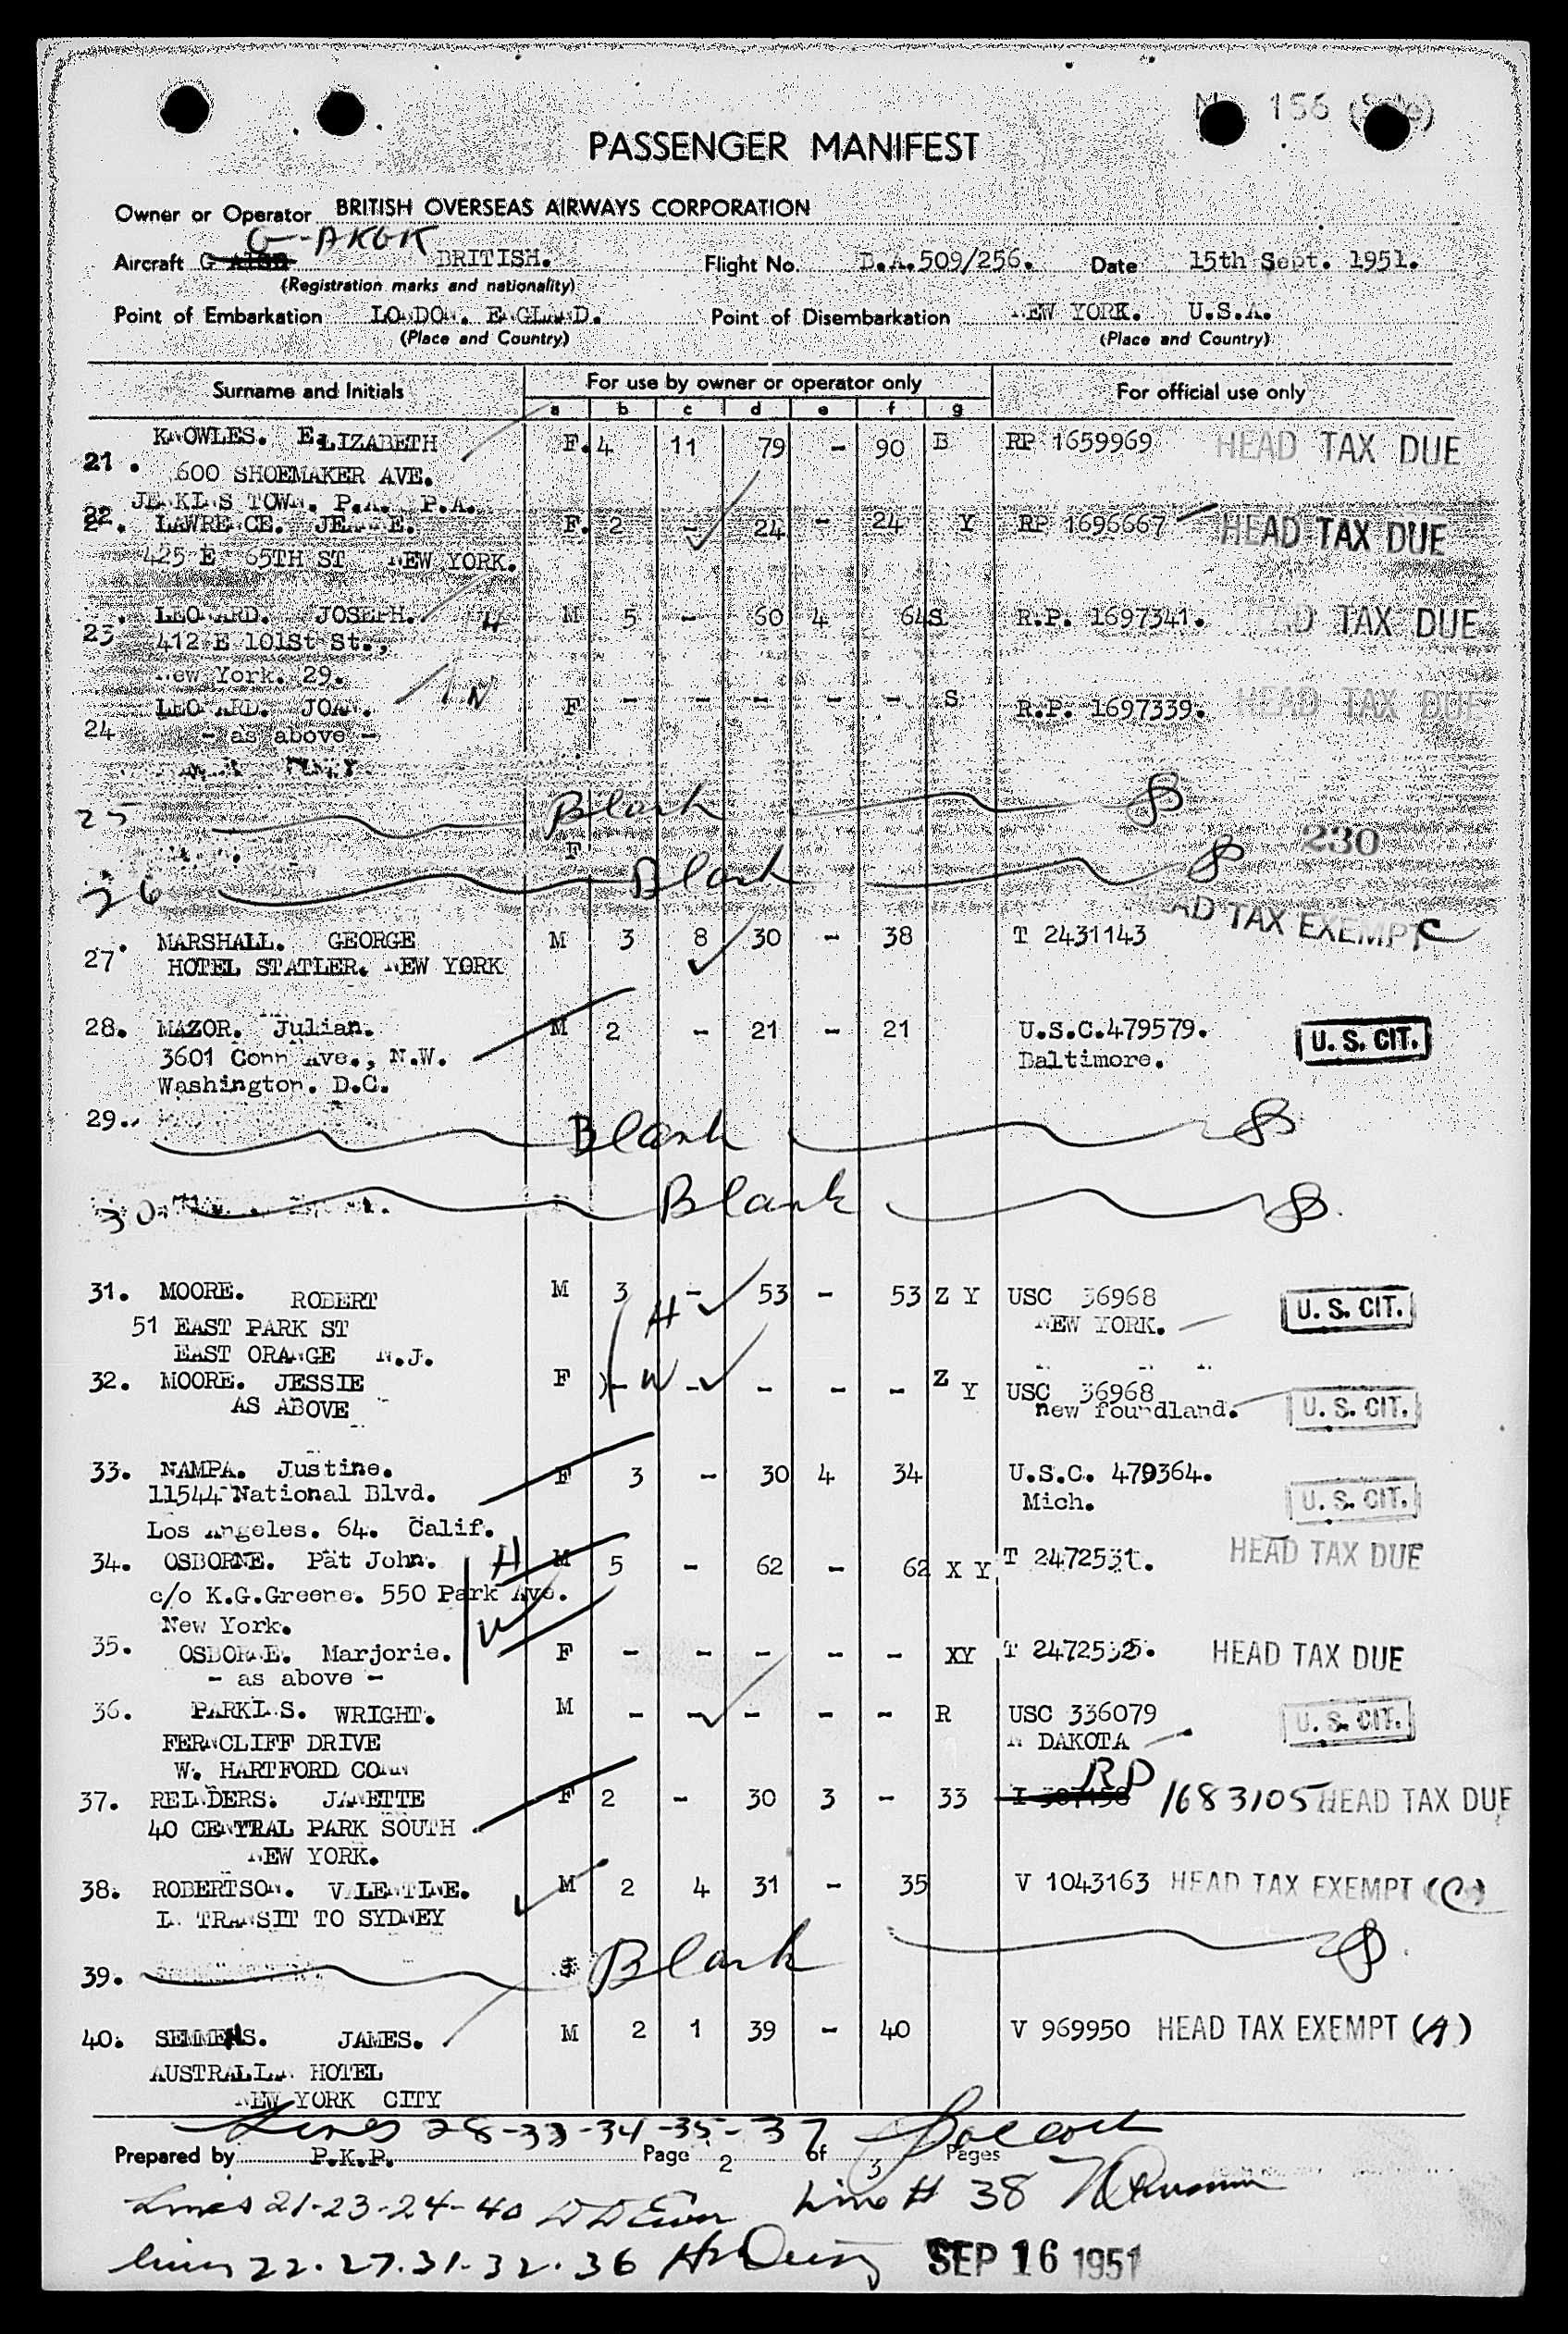 156
PASSENGER MANIFEST
Owner or Operator BRITISH OVERSEAS AIRWAYS CORPORATION
G-AKGK
Aircraft BRITISH. Flight No. B.A.509/256. Date 15th Sept. 1951.
(Registration marks and nationality)
Point of Embarkation LONDON. ENGLAND. Point of Disembarkation NEW YORK. U.S.A.
(Place and Country) (Place and Country)
Surname and Initials For use by owner or operator only For official use only
a b c d e f g
21. KNOWLES. ELIZABETH F. 4 11 79 - 90 B RP 1659969 HEAD TAX DUE
600 SHOEMAKER AVE.
JENKINS TOWN. P.A. P.A.
22. LAWRENCE. JEANNE. F. 2 - 24 - 24 Y RP 1696667 HEAD TAX DUE
425 E 65TH ST NEW YORK.
23 LEONARD. JOSEPH. H M 5 - 60 4 64 S R.P. 1697341. HEAD TAX DUE
412 E 101St St.,
New York. 29.
24 LEONARD. JOAN. W F - - - - - S R.P. 1697339. HEAD TAX DUE
- as above -
25 Blank
230
F
26 Blank
HEAD TAX EXEMPT C
27. MARSHALL. GEORGE M 3 8 30 - 38 T 2431143
HOTEL STATLER. NEW YORK
28. MAZOR. Julian. M 2 - 21 - 21 U.S.C.479579. U. S. CIT.
3601 Conn Ave., N.W. Baltimore.
Washington. D.C.
29. Blank
30. Blank
31. MOORE. ROBERT M 3 - 53 - 53 Z Y USC 36968 U. S. CIT.
H
51 EAST PARK ST NEW YORK.
EAST ORANGE N.J.
32. MOORE. JESSIE F - W - - - - Z Y USC 36968 U. S. CIT.
AS ABOVE new foundland.
33. NAMPA. Justine. F 3 - 30 4 34 U.S.C. 479364. U. S. CIT.
11544 National Blvd. Mich.
Los Angeles. 64. Calif.
34. OSBORNE. Pat John. H M 5 - 62 - 62 X Y T 2472531. HEAD TAX DUE
c/o K.G.Greene. 550 Park Ave.
New York. W
35. OSBORNE. Marjorie. F - - - - - XY T 2472532. HEAD TAX DUE
- as above -
36. PARKINS. WRIGHT. M - - - - - R USC 336079 U. S. CIT.
FERNCLIFF DRIVE N DAKOTA
W. HARTFORD CONN
37. REINDERS. JANETTE F 2 - 30 3 - 33 RP 1683105 HEAD TAX DUE
40 CENTRAL PARK SOUTH
NEW YORK.
38. ROBERTSON. VALENTINE. M 2 4 31 - 35 V 1043163 HEAD TAX EXEMPT (C)
IN TRANSIT TO SYDNEY
39. Blank
40. SEMMENS. JAMES. M 2 1 39 - 40 V 969950 HEAD TAX EXEMPT (A)
AUSTRALIAN HOTEL
NEW YORK CITY
Lines 28-33-34-35-37
Prepared by P.K.P. Page 2 of 3 Pages
Lines 21-23-24-40 Line # 38
lines 22.27.31.32.36 SEP 16 1951